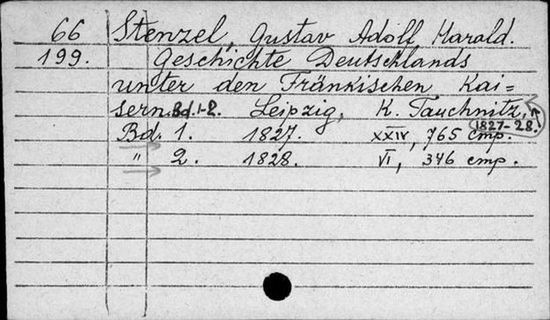 66 Stenzel, Gustav Adolf Harald.
199. Geschichte Deutschlands
unter den Fränkischen Kai=
sern. Bd. 1-2. Leipzig, K. Tauchnitz,
1827-28.
Bd. 1. 1827. XXIV, 765 cmp.
" 2. 1828. VI, 346 cmp.